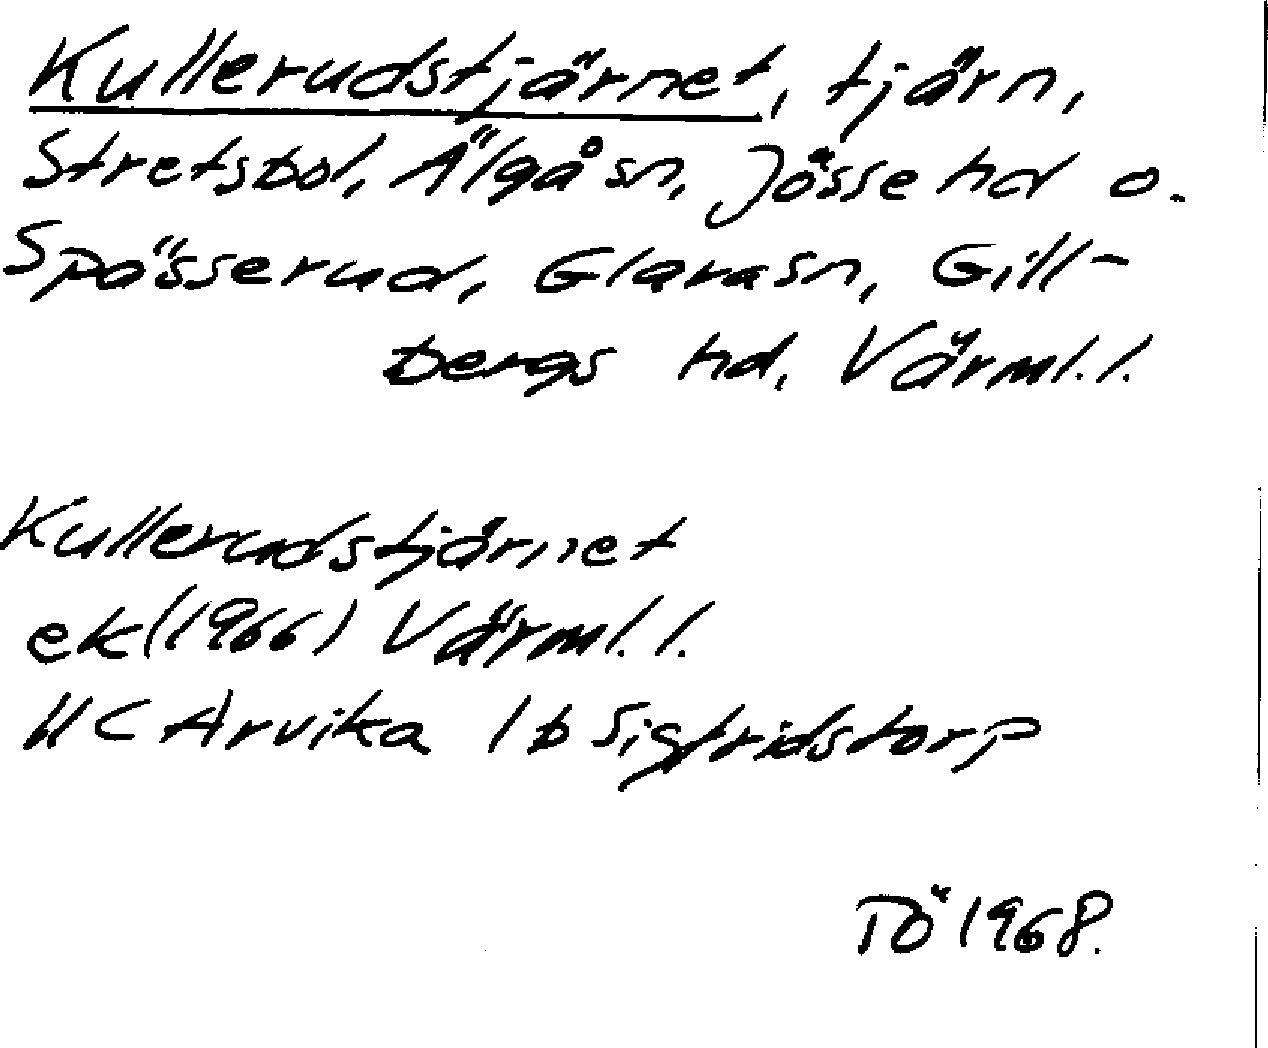 Kullerudstjärnet, tjärn,
Stretsbol, Älgå sn, Jösse hd o.
Spässerud, Glava sn, Gill-
bergs hd, Värml. l.
Kullerudstjärnet
ek (1966) Värml. l.
11 C Arvika 1 b Sigfridstorp
TÖ 1968.